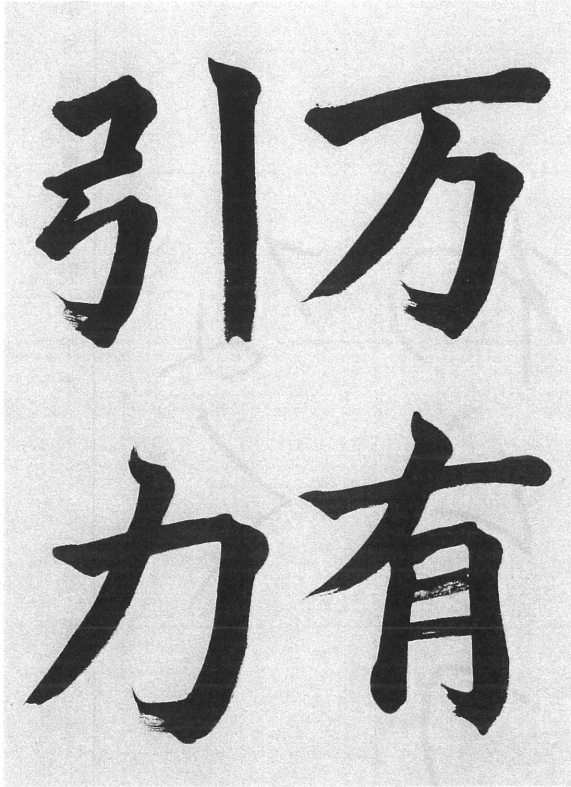 万有
引力